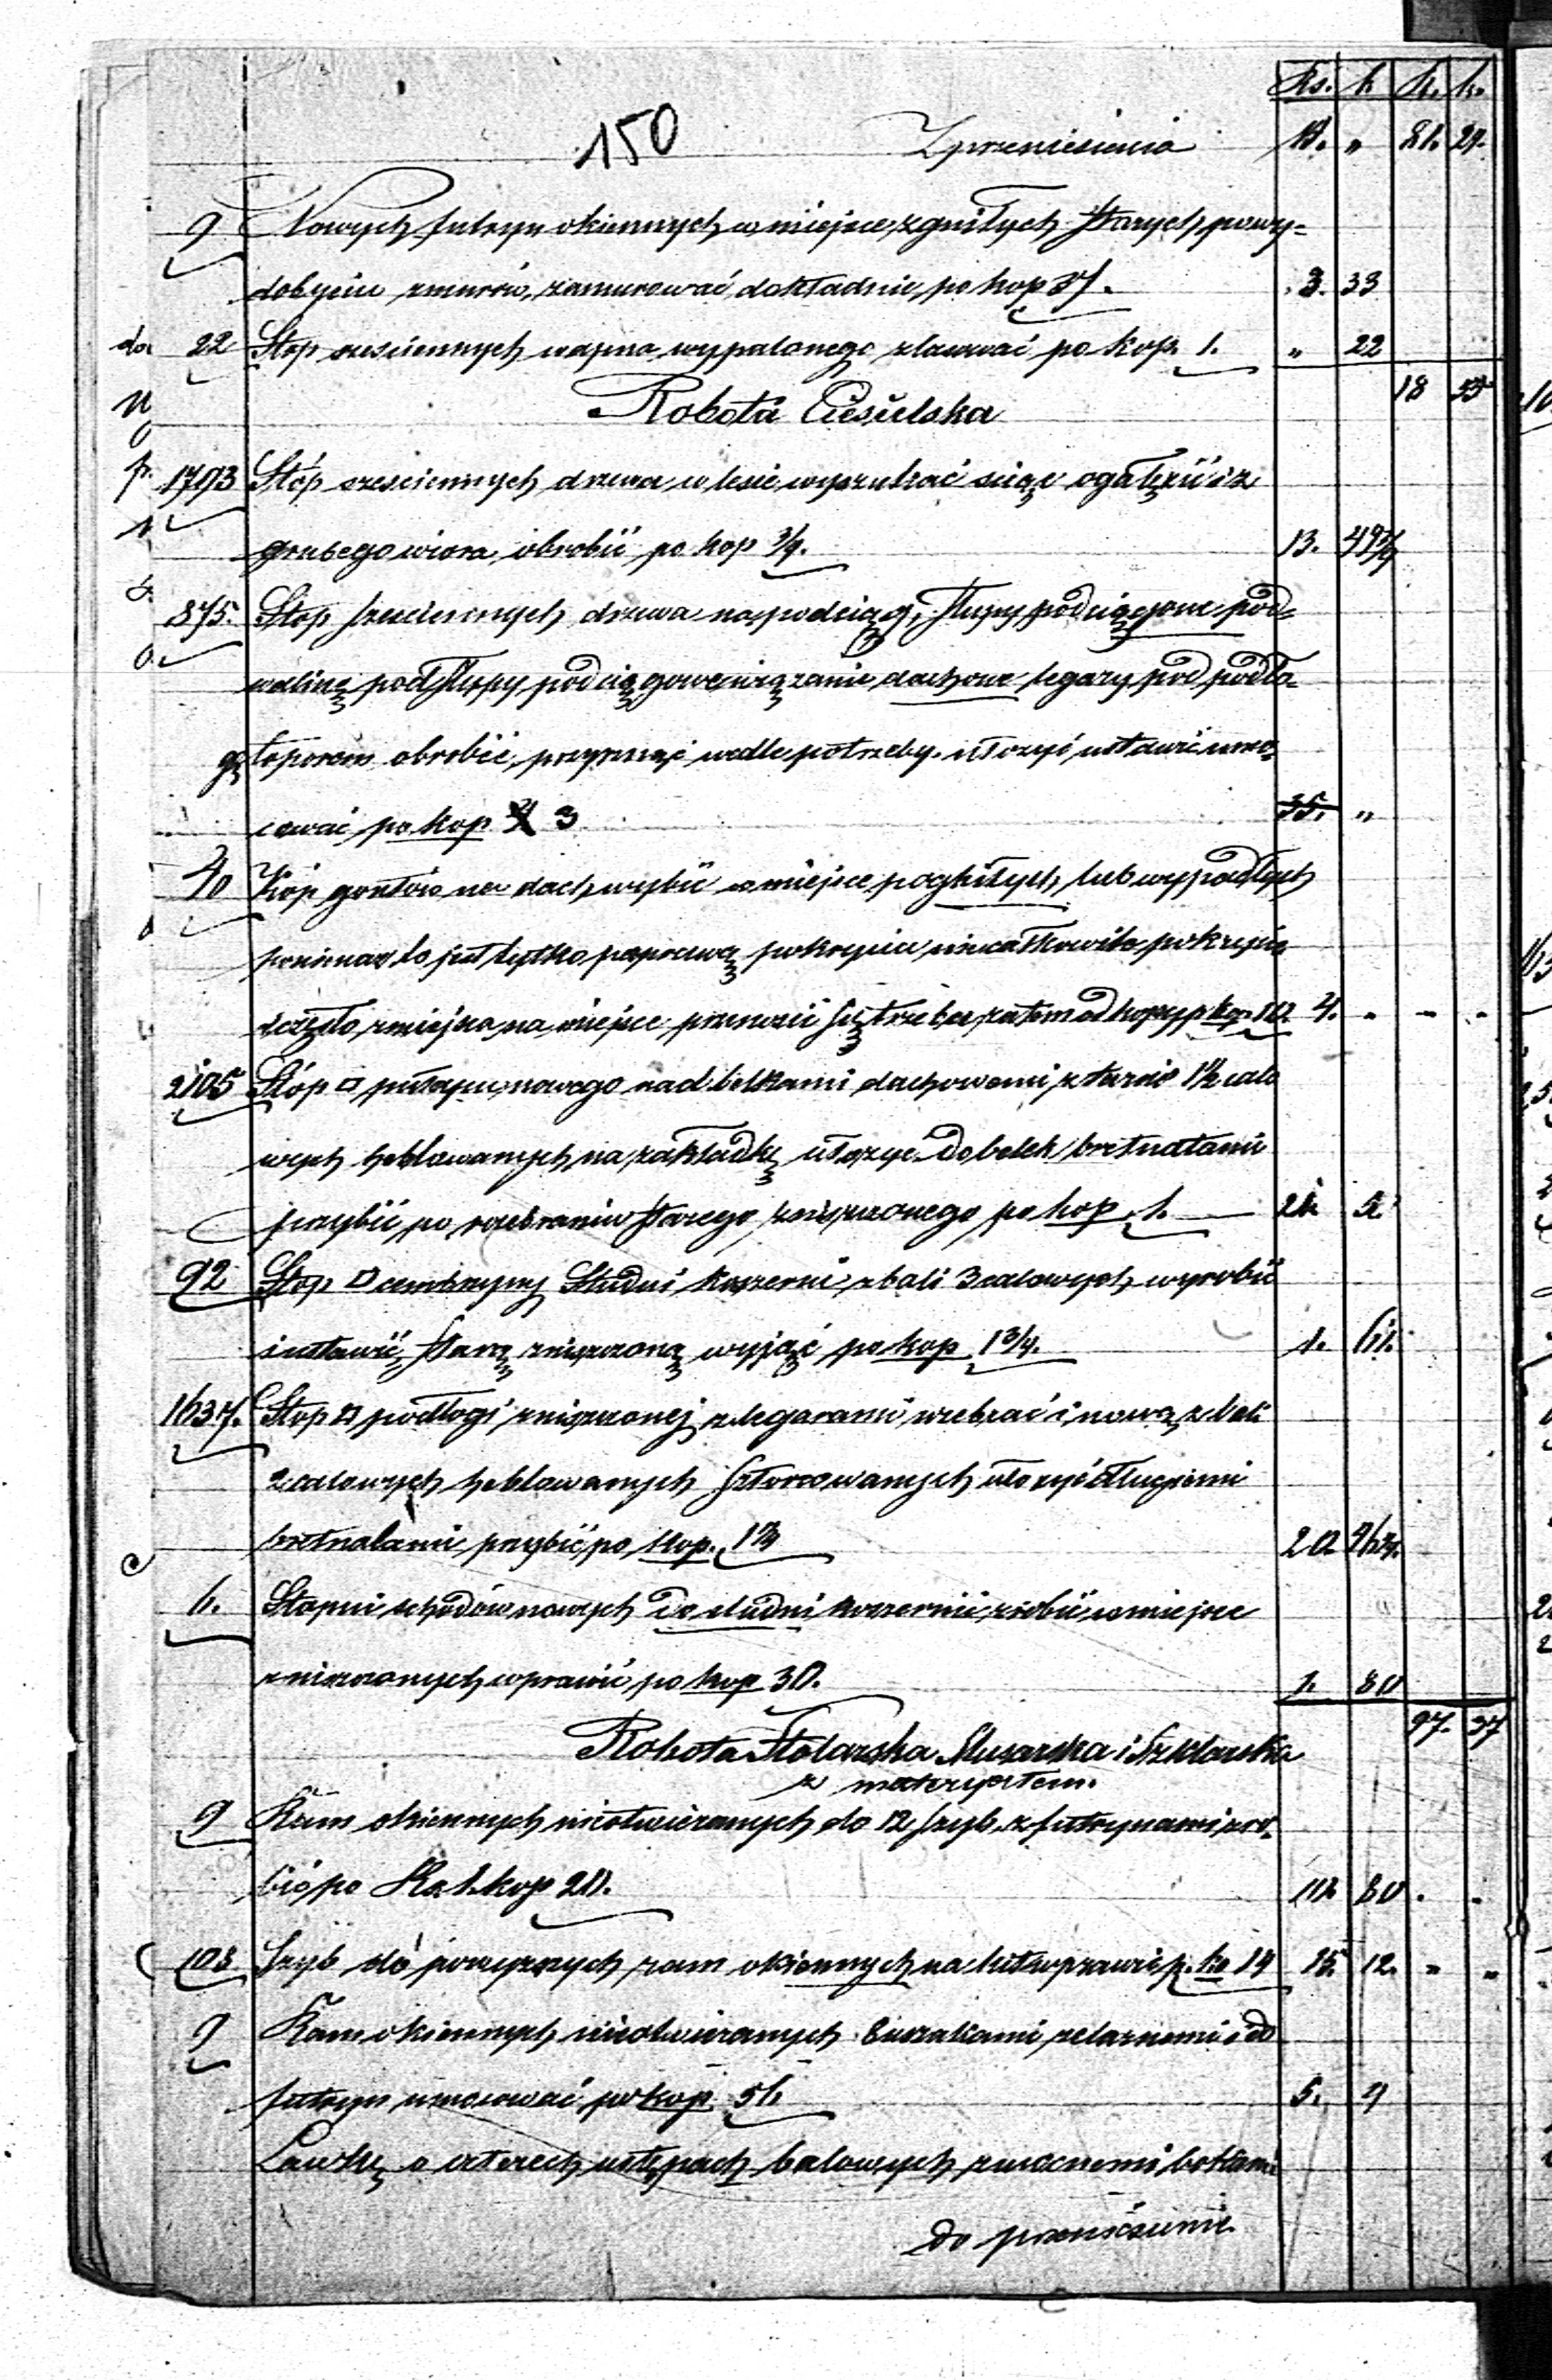 Rs. k R. k.
150 Z przeniesienia 11. „ 81. 24.
9 Nowych futryn okiennych w miejsce zgniłych starych, po wy=
dobyciu z murów, zamurować dokładnie, po kop 37. 3. 33
22 Stop sześciennych wapna wypalonego zlasować po kop. 1. „ 22
18 55
Robota Ciesielska
1793 Stóp sześciennych drzewa w lesie wyszukać ściąć ogałęzić i z
grubego wióra obrobić po kop 3/4. 13. 44 3/4
875. Stop sześciennych drzewa na podciągi, słupy podciągowe pod=
walinę pod słupy podciągowe wiązanie dachowe legary pod podło=
gę toporem obrobić, przyrznąć wedle potrzeby, ułożyć ustawić umo=
cować po kop 4 3 35. „
40 Kóp gontów na dach wybić w miejsce pogniłych lub wypadłych
ponieważ to jest tylko poprawą pokrycia nie całkowite pokrycie
i często z miejsca na miejsce przenosić się trzeba, zatem od kopy p kop. 10. 4. - - -
2105 Stóp □ pułapu nowego nad belkami dachowemi z tarcic 1 1/2 calo
wych heblowanych na zakładkę ułożyć do belek bretnalami
przybić po rozebraniu starego zniszczonego po kop. 1. 21 5.
92 Stop □ cembrzyny Studni koszerni z bali 3 calowych wyrobić
i ustawić, starą zniszczoną wyjąć po kop 1 3/4. 1. 61.
1637. Stop □ podłogi zniszczonej z legarami rozebrać i nową z bali
2 calowych heblowanych sztorcowanych ułożyć długiemi
bretnalami przybić po kop. 1 1/4 20 46 1/4.
6. Stopni schodów nowych do studni koszernie zrobić w miejsce
zniszczonych wprawić po kop 30. 1. 80
97. 37
Robota Stolarska Slusarska i Szklarska
z materyałem.
9 Ram okiennych nieotwieranych do 12 szyb, z futrynami zro=
bić po Rs 1. kop 20. 10. 80 . .
108 Szyb do powyższych ram okiennych na kit wprawić p. ko 14 15. 12. „ „
9 Ram okiennych nieotwieranych hiszakami żelaznemi od
futryn umocować po kop 56. 5. 4
Ławkę o czterech ustępach balowych z mocnemi bokami
do przeniesienia